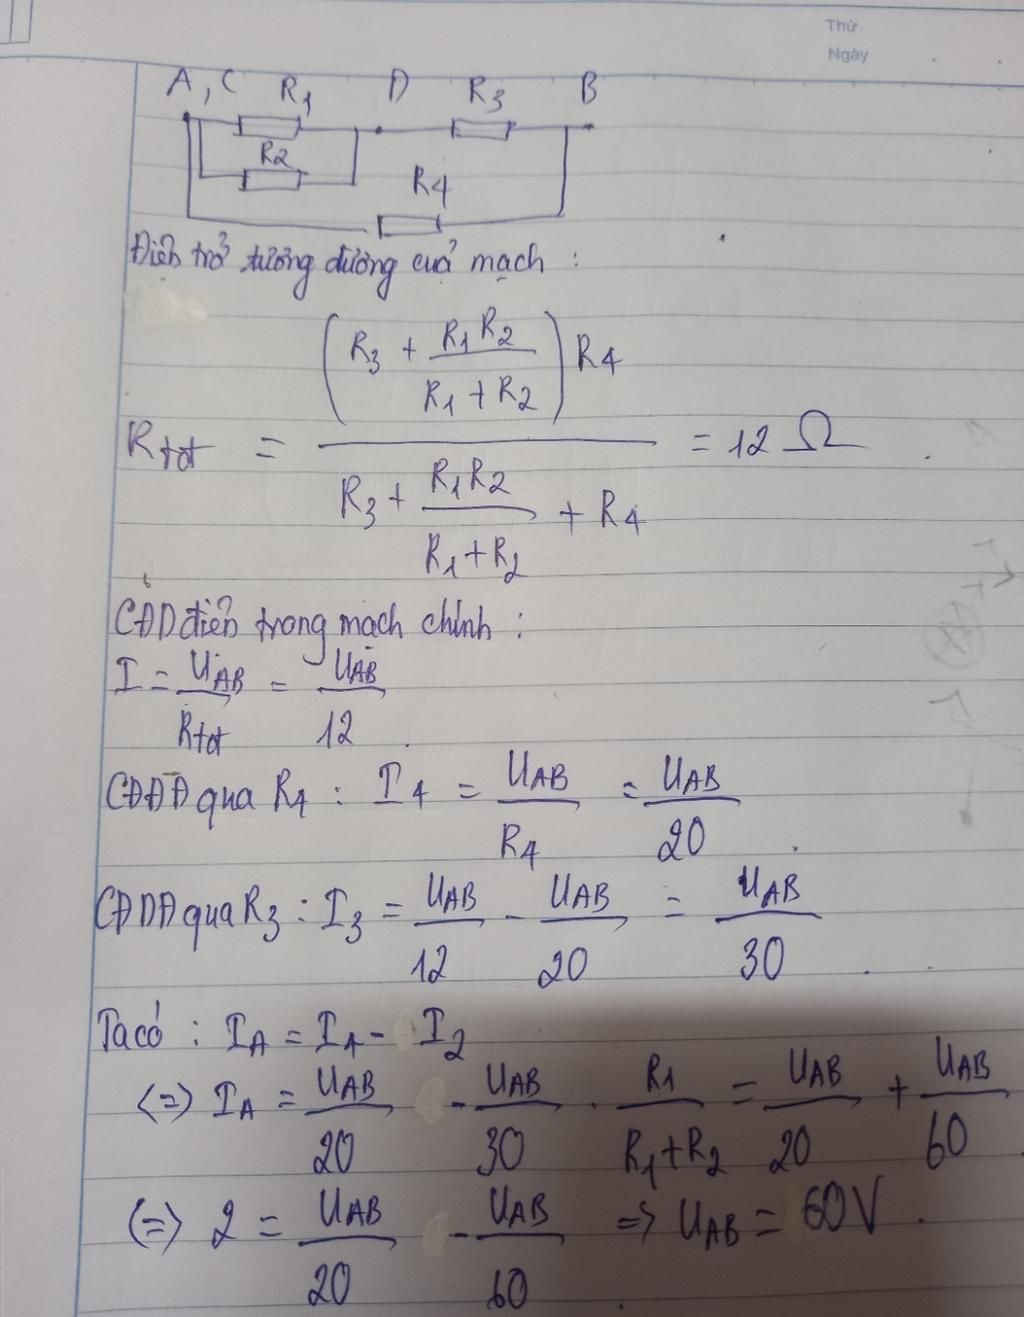 Thứ
Ngày
A, C R1 D R3 B
R2
R4
Điện trở tương đương của mạch :
Rtđ = (R3 + R1 R2 / (R1 + R2)) R4 / (R3 + R1 R2 / (R1 + R2) + R4) = 12 Ω
CĐD điện trong mạch chính :
I = UAB / Rtđ = UAB / 12
CĐDĐ qua R4 : I4 = UAB / R4 = UAB / 20
CĐDĐ qua R3 : I3 = UAB / 12 - UAB / 20 = UAB / 30
Ta có : IA = I4 - I2
<=> IA = UAB / 20 - UAB / 30 . R1 / (R1 + R2) = UAB / 20 + UAB / 60
<=> 2 = UAB / 20 - UAB / 60 => UAB = 60V